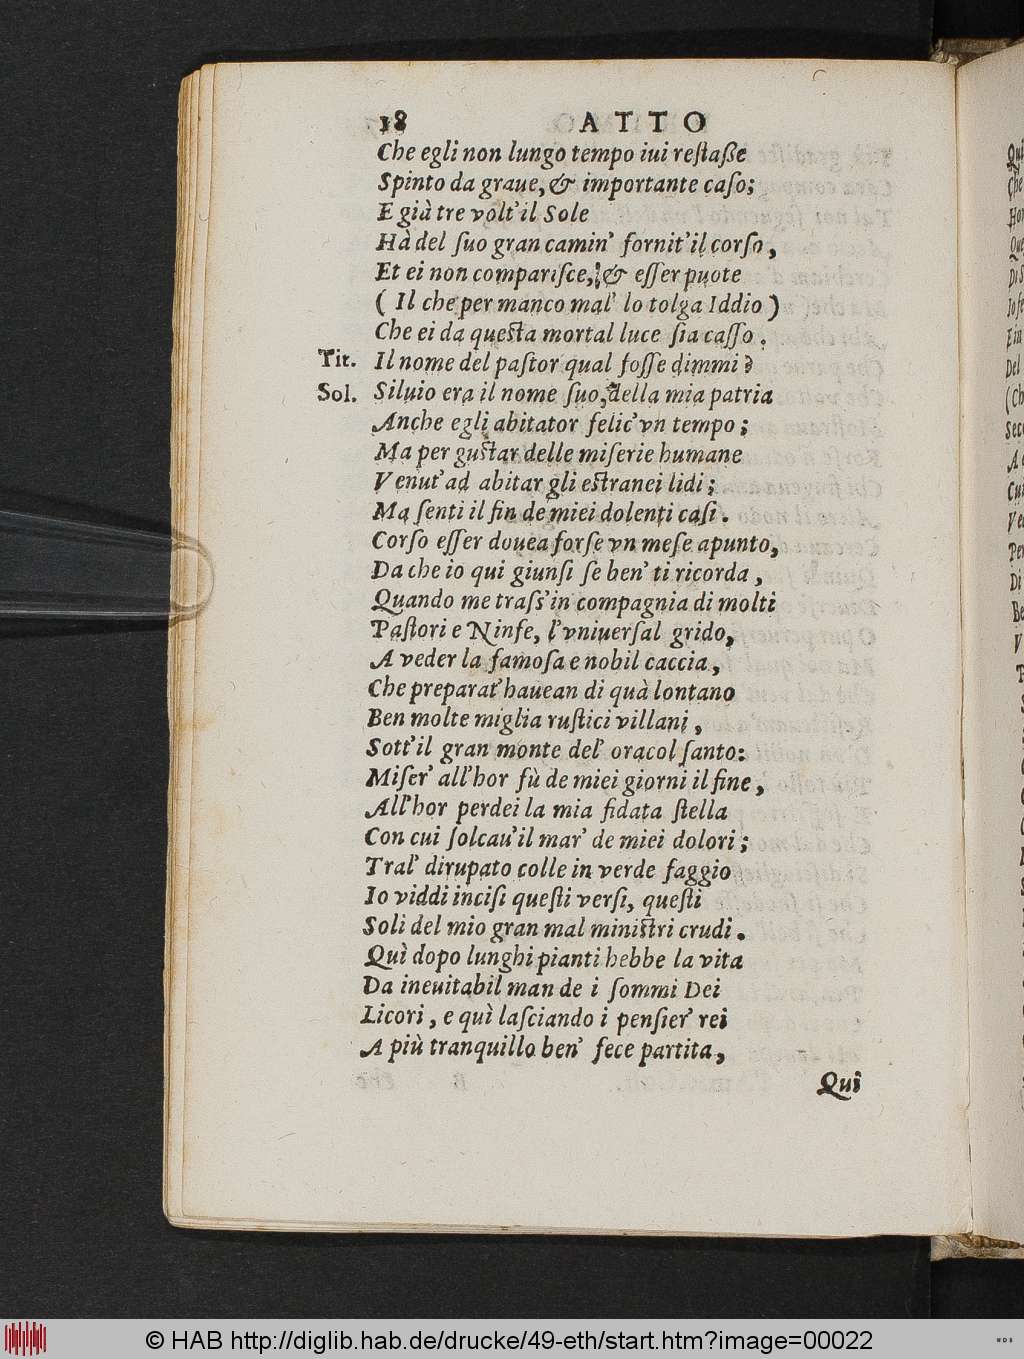 18 ATTO
Che egli non lungo tempo iui reſtaße
Spinto da graue, & importante caſo;
E già tre volt' il Sole
Hà del ſuo gran camin' fornit' il corſo,
Et ei non compariſce, & eſſer puote
( Il che per manco mal' lo tolga Iddio )
Che ei da queſta mortal luce ſia caſſo.
Tit. Il nome del paſtor qual foſſe dimmi?
Sol. Siluio era il nome ſuo, della mia patria
Anche egli abitator felic' vn tempo;
Ma per guſtar delle miſerie humane
Venut' ad abitar gli eſtranei lidi;
Ma ſenti il fin de miei dolenti caſi.
Corſo eſſer douea forſe vn meſe apunto,
Da che io qui giunſi ſe ben' ti ricorda,
Quando me traſs' in compagnia di molti
Paſtori e Ninfe, l'vniuerſal grido,
A veder la famoſa e nobil caccia,
Che preparat' hauean di quà lontano
Ben molte miglia ruſtici villani,
Sott' il gran monte del' oracol ſanto:
Miſer' all'hor fù de miei giorni il fine,
All'hor perdei la mia fidata ſtella
Con cui ſolcau' il mar' de miei dolori;
Tral' dirupato colle in verde faggio
Io viddi inciſi queſti verſi, queſti
Soli del mio gran mal miniſtri crudi.
Quì dopo lunghi pianti hebbe la vita
Da ineuitabil man de i ſommi Dei
Licori, e quì laſciando i penſier' rei
A più tranquillo ben' fece partita,
Qui
© HAB http://diglib.hab.de/drucke/49-eth/start.htm?image=00022